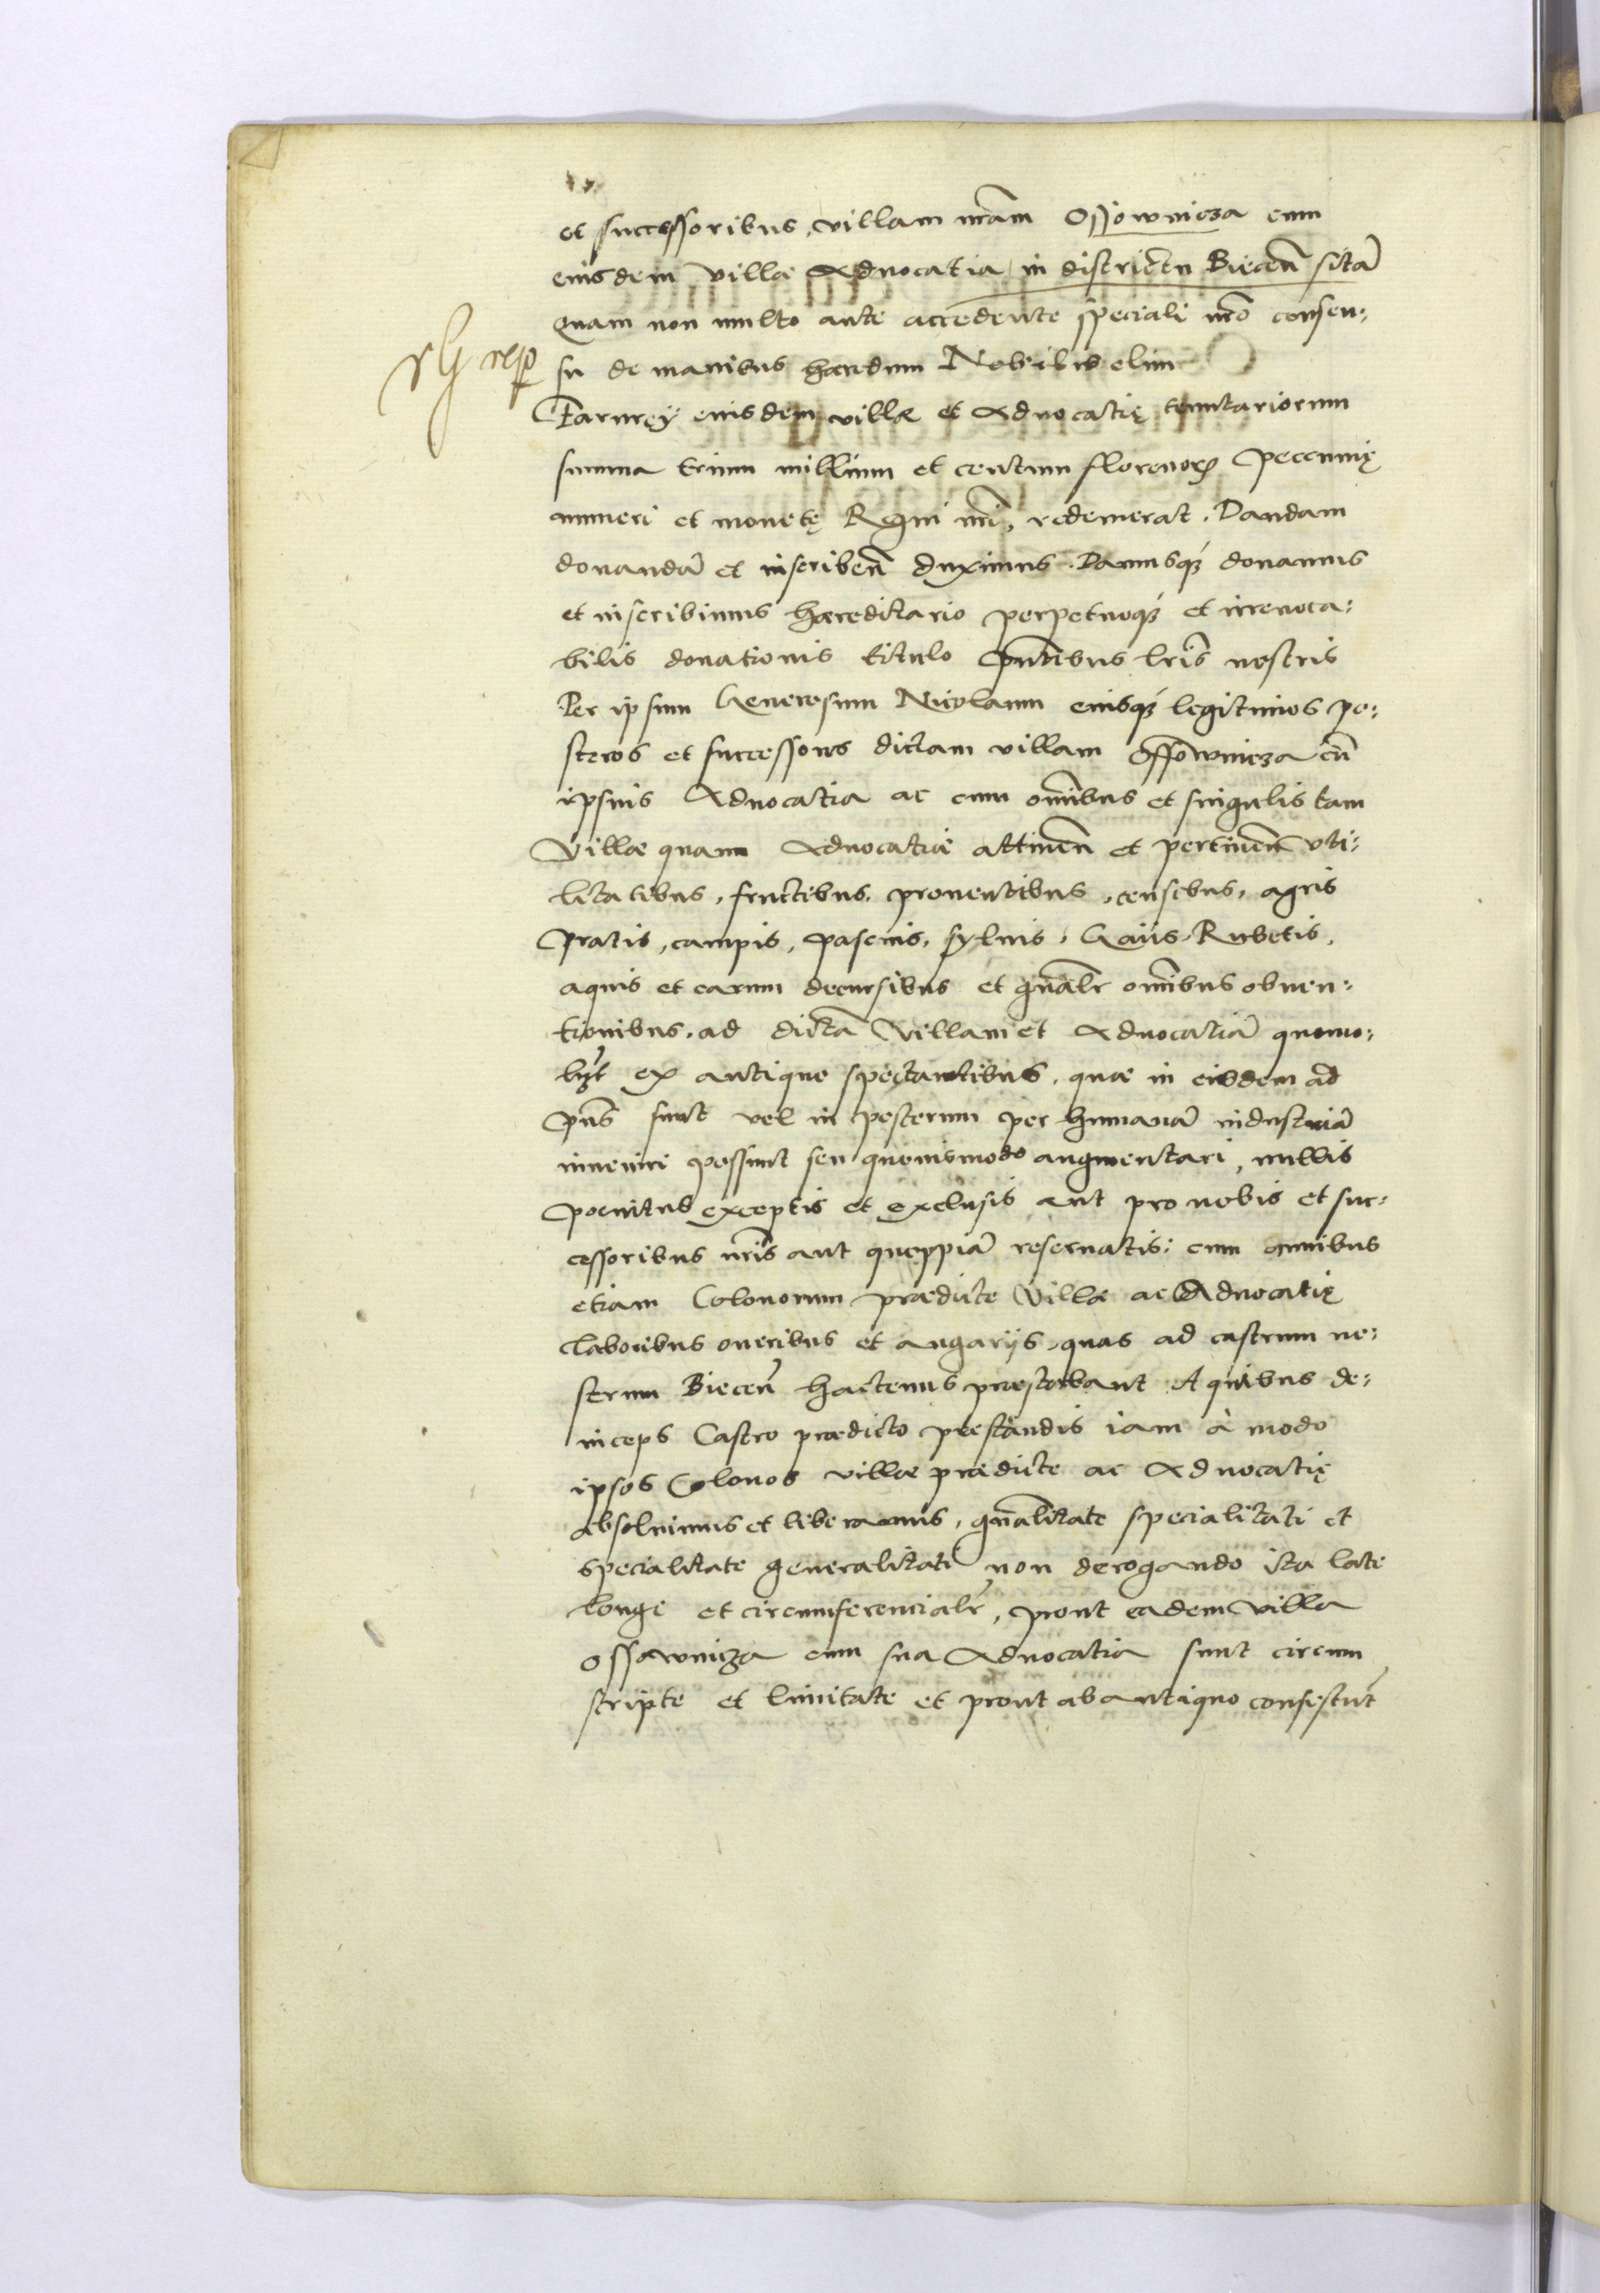 et successoribus, villam nr̃am Ossownicza cum
eiusdem villæ Aduocatia, in districtu Biecen̄ sitā
Quam non multo ante accedente speciali nr̃o consen:
su de manibus hæredum Nobilis olim
Farurej eiusdem villæ et Aduocatię tenutariorum
summa trium millium et centum florenoꝝ peccunię
numeri et monetę Regni nr̃i, redemerat. Dandam
donandā et inscriben̄ duximus. Damusq́ donamus
et inscribimus hæreditario perpetuoq́ et irreuoca:
bilis donationis titulo pn̄tibus lr̃is nostris
Per ipsum Generosum Nicolaum eiusq́ legitimos po:
steros et successores dictam villam Ossownicza cū
ipsius Aduocatia ac cum om̄ibus et singulis tam
Villæ quam Aduocatiæ attinen̄ et pertinen̄ vti:
litatibus, fructibus, prouentibus, censibus, agris
Pratis, campis, pascuis, syluis, Gaiis, Rubetis,
aquis et earum decursibus et gn̄alr̃ om̄ibus obuen:
tionibus, ad dictā Villam et Aduocatiā quomo:
lꝫt ex antiquo spectantibus, quæ in eisdem ad
pn̄s sunt vel in posterum per humanā industriā
inueniri possunt seu quouismodo augmentari, nullis
poenitus exceptis et exclusis aut pro nobis et suc:
cessoribus nr̃is aut quoppiā reseruatis: cum omnibus
etiam Colonorum prædicte Villæ ac Aduocatię
laboribus oneribus et angarijs, quas ad castrum no:
strum Biecen̄ hactenus præstabant A quibus de:
inceps Castro prædicto præstandis iam à modo
ipsos Colonos villæ prædicte ac Aduocatię
absoluimus et liberamus, gn̄alitate specialitati et
specialitate generalitati non derogando ita late
longe et circumferencialr̃, prout eadem villa
Ossownicza cum sua Aduocatia sunt circum
scripte et limitate et prout ab antiquo consistūt